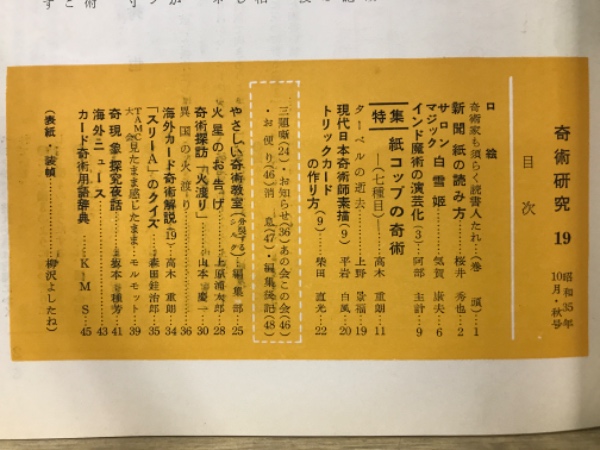 奇術研究 19
昭和35年
10月・秋号
目次
口絵
奇術家も須らく読書人たれ…(巻頭)…1
新聞紙の読み方…桜井 秀也…2
サロンマジック 白雪姫…気賀 康夫…6
インド魔術の演芸化(3)…阿部 主計…9
特集 紙コップの奇術
―(七種目)―高木 重朗…11
ターベルの逝去…上野 景福…19
現代日本奇術師素描(9)…平岩 白風…20
トリックカードの作り方(9)…柴田 直光…22
三題噺(24)・お知らせ(36)あの会この会(46)
・お便り(46)消息(47)・編集後記(48)
やさしい奇術教室…編集部…25
火星のお告げ…上原浦太郎…28
奇術探訪「火渡り」…山本 慶一…30
異国の火渡り…36
海外カード奇術解説(19)…高木 重朗…34
「スリーA」のクイズ…鞍治郎…35
TAMC大会見たまま感じたまま…モルモット…39
奇現象探究夜話…坂本 種芳…41
海外ニュース…43
カード奇術用語辞典…K・M・S…45
(表紙・装幀…柳沢よしたね)